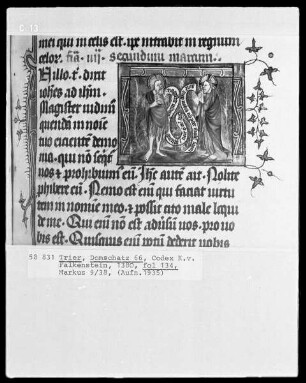 mei qui in celis est ipse intrabit in regnum
celor. fia. iij. secundum marcum.
In illo t. dixit
iohes ad ihm.
Magister vidim
quenda in noie
tuo eicientem demo
nia. qui non seqr
nos & prohibuim eu. Ihc aute ait. Nolite
phibere eu. Nemo est eni qui faciat virtu
tem in nomine meo. & possit cito male loqui
de me. Qui eni non est adusu uos. pro uo
bis est. Quisquis eni potu dederit uobis
58 831 Trier, Domschatz 66, Codex K.v.
Falkenstein, 1380, fol 134,
Markus 9/38, (Aufn.1935)
C 13